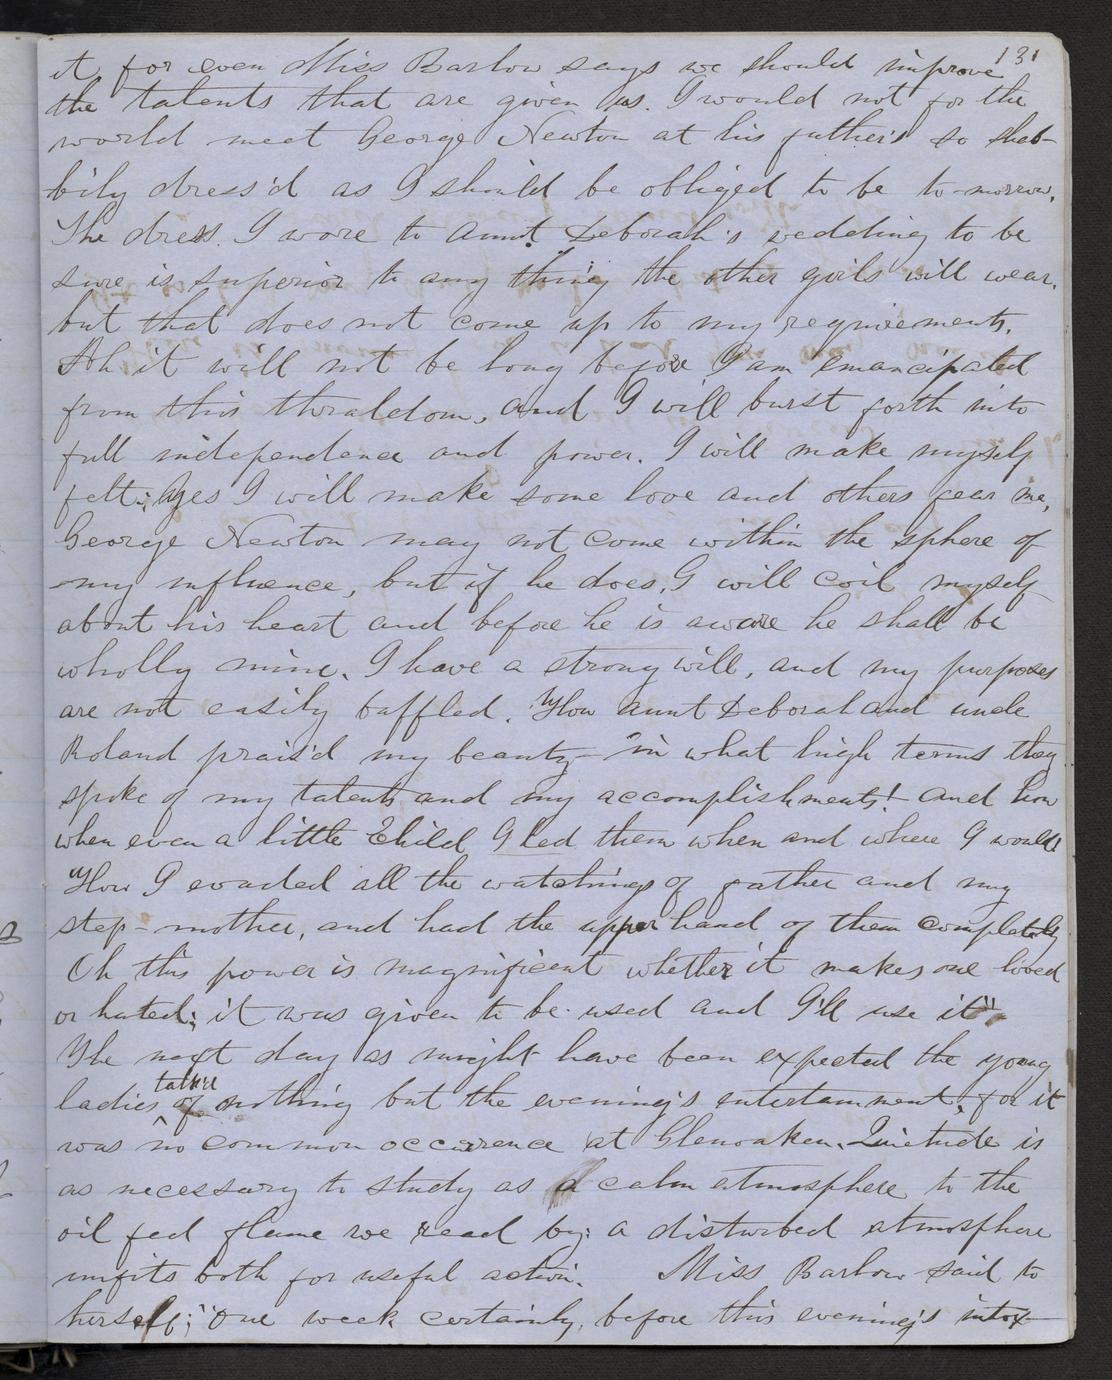 131
it, for even Miss Barlow says we should improve
the talents that are given us. I would not for the
world meet George Newton at his father's so shab-
bily dress'd as I should be obliged to be to-morrow.
The dress I wore to aunt Deborah's wedding to be
sure is superior to any thing the other girls will wear,
but that does not come up to my requirements.
Ah it will not be long before I am emancipated
from this thraldom, and I will burst forth into
full independence and power. I will make myself
felt; yes I will make some love and others fear me,
George Newton may not come within the sphere of
my influence, but if he does, I will coil myself
about his heart and before he is aware he shall be
wholly mine. I have a strong will, and my purposes
are not easily baffled. "How aunt Deborah and uncle
Roland prais'd my beauty— in what high terms they
spoke of my talents and my accomplishments! and how
when even a little child I led them when and where I would
"How I evaded all the watchings of father and my
step-mother, and had the upper hand of them completely
Oh this power is magnificent whether it makes one loved
or hated; it was given to be used and I'll use it"
The next day as might have been expected the young
ladies talked of nothing but the evening's entertainment, for it
was no common occurrence at Glenoaken. Quietude is
as necessary to study as a calm atmosphere to the
oil fed flame we read by: a disturbed atmosphere
unfits both for useful action. Miss Barlow said to
herself; "One week certainly, before this evening's intox-